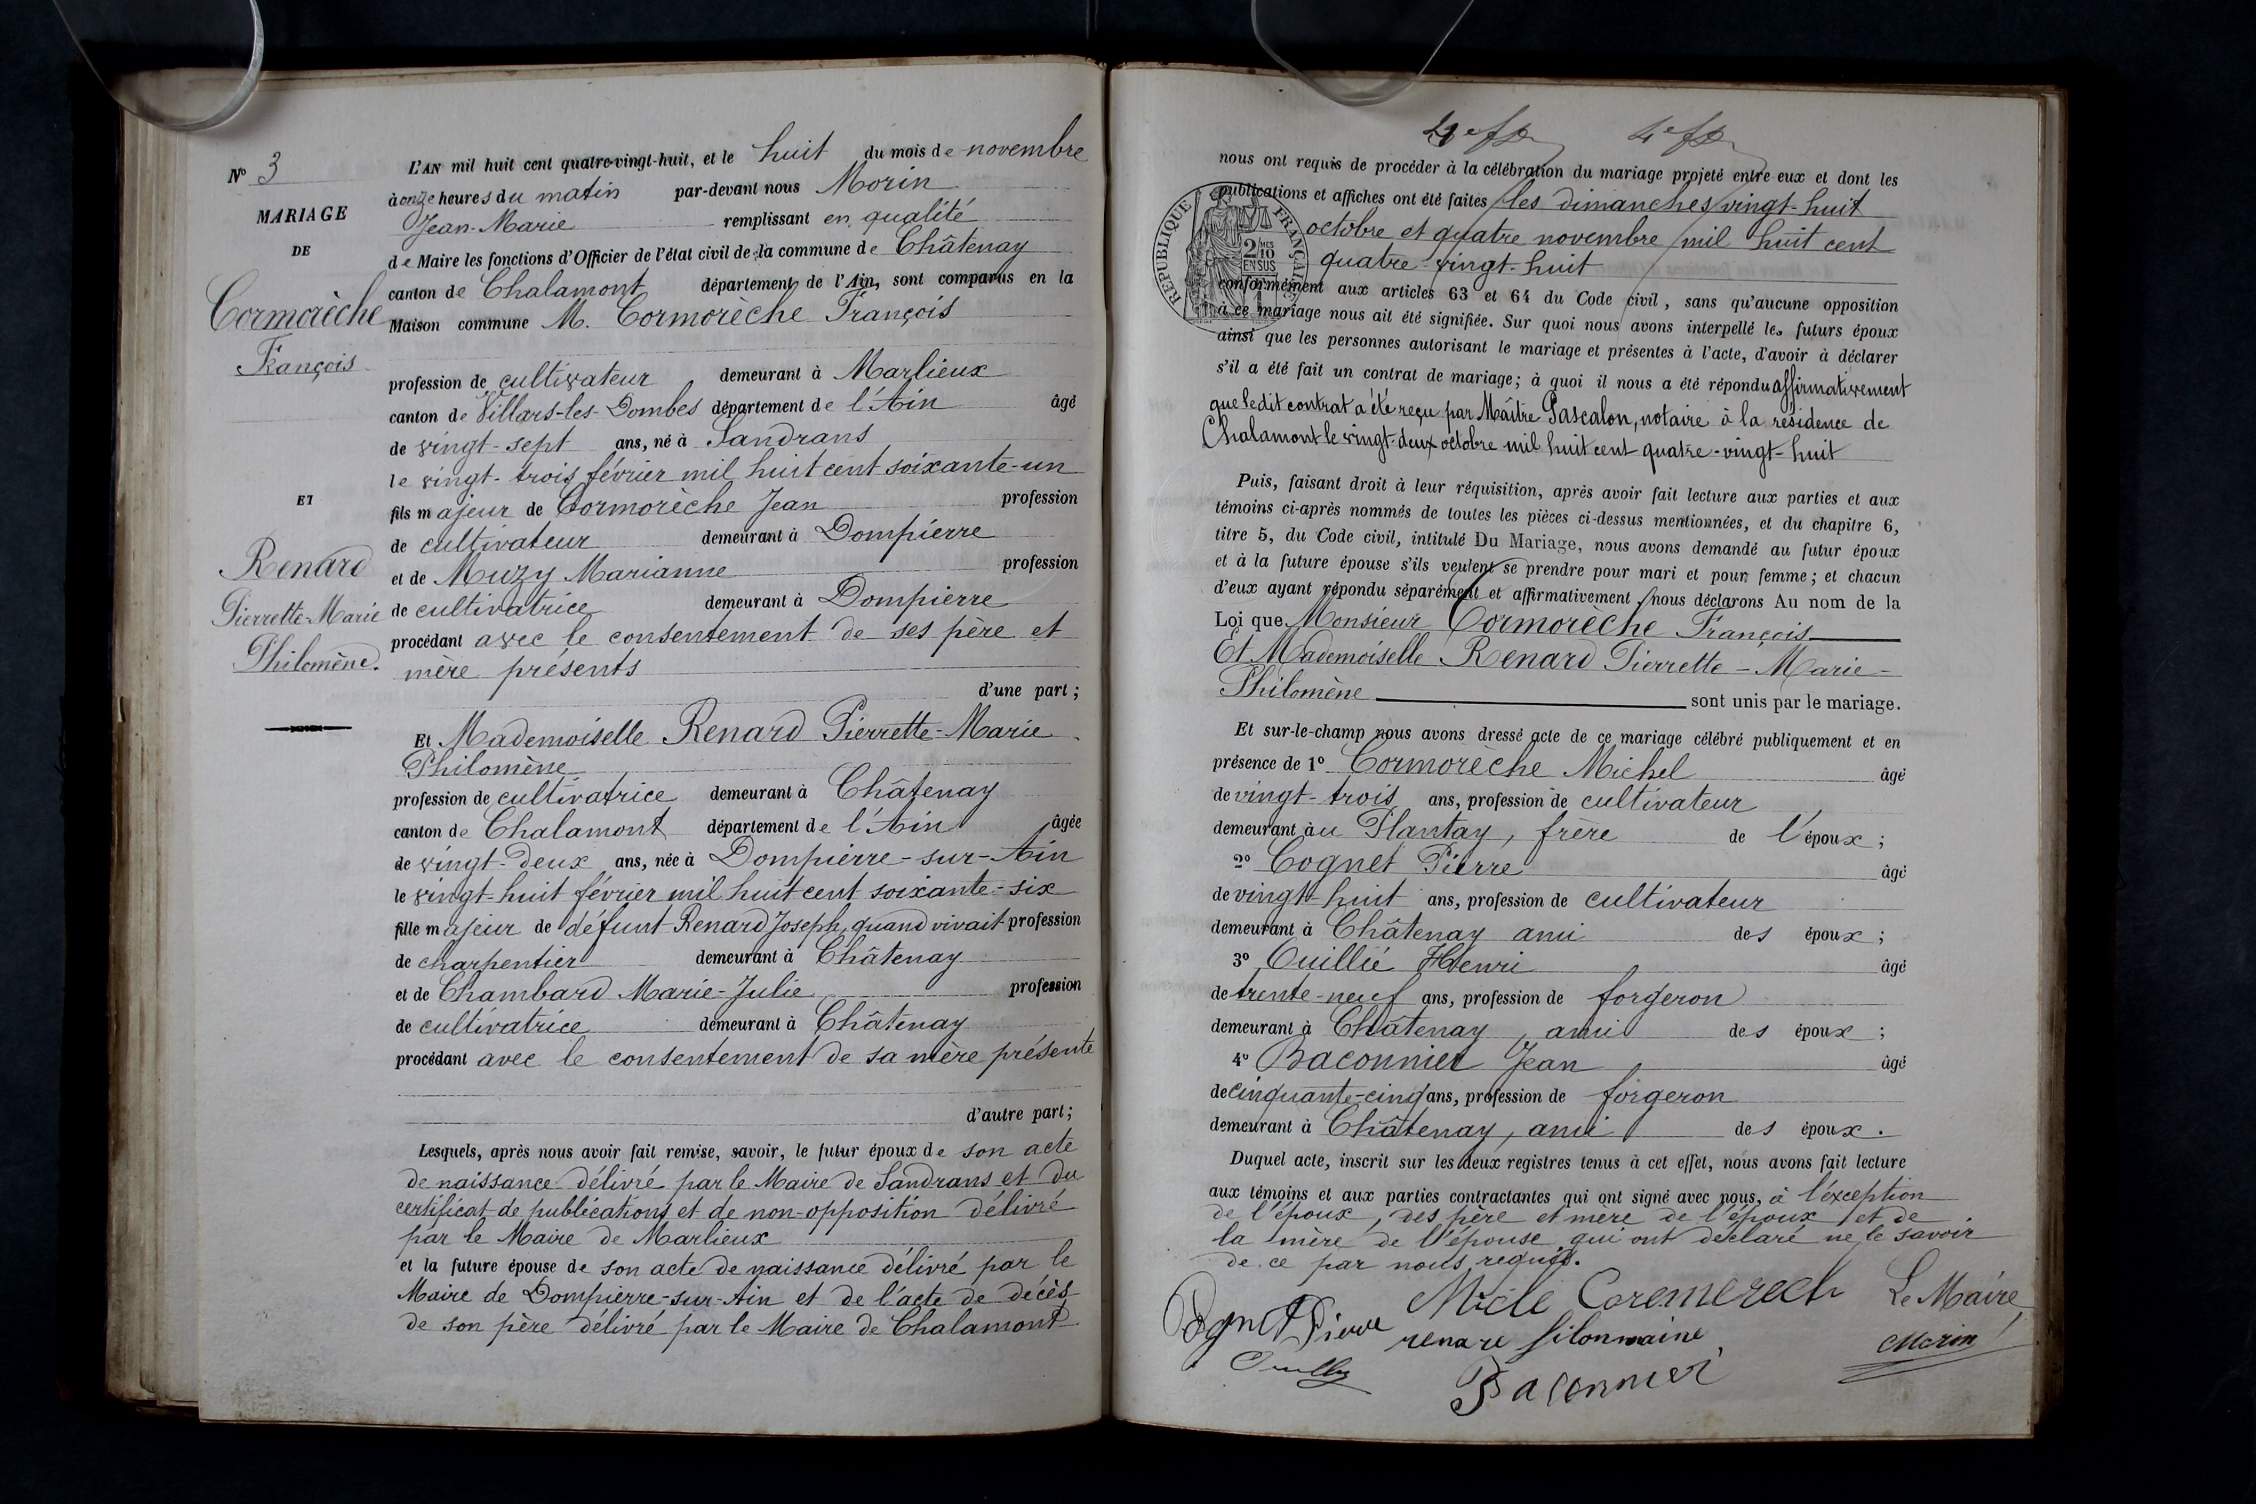 N° 3
MARIAGE
DE
Cormorèche
François
ET
Renard
Pierrette-Marie
Philomène.
L'AN mil huit cent quatre-vingt-huit, et le huit du mois de novembre
à onze heures du matin par-devant nous Morin
Jean-Marie remplissant en qualité
de Maire les fonctions d'Officier de l'état civil de la commune de Châtenay
canton de Chalamont département de l'Ain, sont comparus en la
Maison commune M. Cormorèche François
profession de cultivateur demeurant à Marlieux
canton de Villars-les-Dombes département de l'Ain âgé
de vingt-sept ans, né à Sandrans
le vingt-trois février mil huit cent soixante-un
fils majeur de Cormorèche Jean profession
de cultivateur demeurant à Dompierre
et de Muzy Marianne profession
de cultivatrice demeurant à Dompierre
procédant avec le consentement de ses père et
mère présents
d'une part ;
Et Mademoiselle Renard Pierrette-Marie
Philomène
profession de cultivatrice demeurant à Châtenay
canton de Chalamont département de l'Ain âgée
de vingt-deux ans, née à Dompierre-sur-Ain
le vingt-huit février mil huit cent soixante-six
fille majeur de défunt Renard Joseph, quand vivait profession
de charpentier demeurant à Châtenay
et de Chambard Marie-Julie profession
de cultivatrice demeurant à Châtenay
procédant avec le consentement de sa mère présente
d'autre part ;
Lesquels, après nous avoir fait remise, savoir, le futur époux de son acte
de naissance délivré par le Maire de Sandrans et du
certificat de publications et de non-opposition délivré
par le Maire de Marlieux
et la future épouse de son acte de naissance délivré par le
Maire de Dompierre-sur-Ain et de l'acte de décès
de son père délivré par le Maire de Chalamont
nous ont requis de procéder à la célébration du mariage projeté entre eux et dont les
publications et affiches ont été faites les dimanches vingt-huit
octobre et quatre novembre mil huit cent
quatre-vingt-huit
RÉPUBLIQUE FRANÇAISE
2 MES
10
EN SUS
conformément aux articles 63 et 64 du Code civil, sans qu'aucune opposition
à ce mariage nous ait été signifiée. Sur quoi nous avons interpellé les futurs époux
ainsi que les personnes autorisant le mariage et présentes à l'acte, d'avoir à déclarer
s'il a été fait un contrat de mariage; à quoi il nous a été répondu affirmativement
que ledit contrat a été reçu par Maître Pascalon, notaire à la résidence de
Chalamont le vingt-deux octobre mil huit cent quatre-vingt-huit
Puis, faisant droit à leur réquisition, après avoir fait lecture aux parties et aux
témoins ci-après nommés de toutes les pièces ci-dessus mentionnées, et du chapitre 6,
titre 5, du Code civil, intitulé Du Mariage, nous avons demandé au futur époux
et à la future épouse s'ils veulent se prendre pour mari et pour femme; et chacun
d'eux ayant répondu séparément et affirmativement, nous déclarons Au nom de la
Loi que Monsieur Cormorèche François
Et Mademoiselle Renard Pierrette-Marie-
Philomène sont unis par le mariage.
Et sur-le-champ nous avons dressé acte de ce mariage célébré publiquement et en
présence de 1° Cormorèche Michel âgé
de vingt-trois ans, profession de cultivateur
demeurant au Plantay, frère de l'époux ;
2° Cognet Pierre âgé
de vingt-huit ans, profession de cultivateur
demeurant à Châtenay ami des époux ;
3° Ouillié Henri âgé
de trente-neuf ans, profession de forgeron
demeurant à Châtenay, ami des époux ;
4° Baconnier Jean âgé
de cinquante-cinq ans, profession de forgeron
demeurant à Châtenay, ami des époux.
Duquel acte, inscrit sur les deux registres tenus à cet effet, nous avons fait lecture
aux témoins et aux parties contractantes qui ont signé avec nous, à l'éxception
de l'époux, des père et mère de l'époux et de
la mère de l'épouse qui ont déclaré ne le savoir
de ce par nous requis.
Micle Coremerech Le Maire,
Pierre renare filonmaine Morin
Baconnier